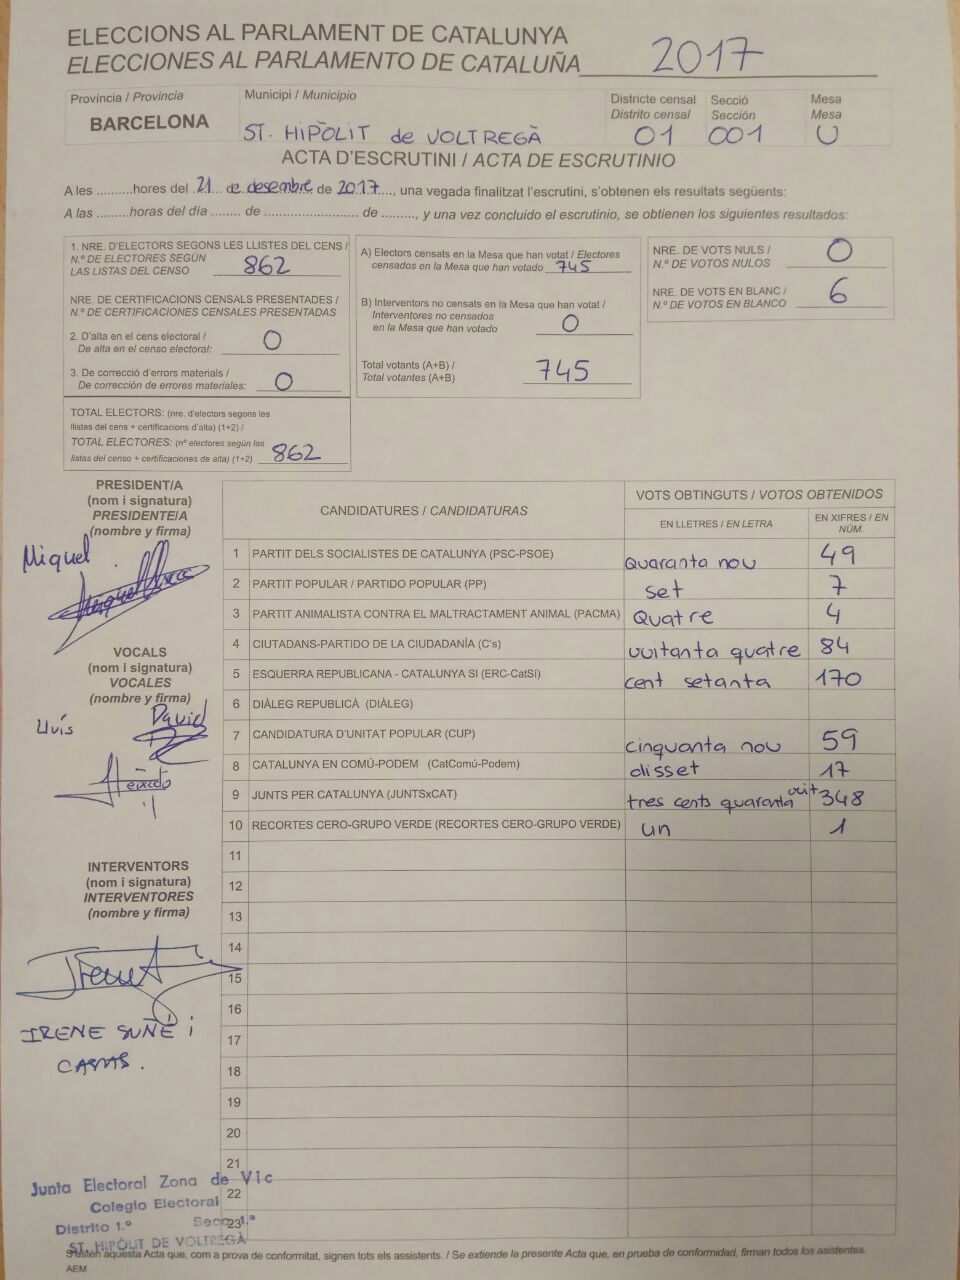 ELECCIONS AL PARLAMENT DE CATALUNYA
ELECCIONES AL PARLAMENTO DE CATALUÑA 2017
Provincia / Provincia
BARCELONA
Municipi / Municipio
ST. HIPÒLIT de VOLTREGÀ
Districte censal
Distrito censal
01
Secció
Sección
001
Mesa
Mesa
U
ACTA D'ESCRUTINI / ACTA DE ESCRUTINIO
A les ..........hores del 21 de desembre de 2017, una vegada finalitzat l'escrutini, s'obtenen els resultats següents:
A las .........horas del día ........ de ....................... de ........., y una vez concluido el escrutinio, se obtienen los siguientes resultados:
1. NRE. D'ELECTORS SEGONS LES LLISTES DEL CENS /
N.º DE ELECTORES SEGÚN
LAS LISTAS DEL CENSO 862
NRE. DE CERTIFICACIONS CENSALS PRESENTADES /
N.º DE CERTIFICACIONES CENSALES PRESENTADAS
2. D'alta en el cens electoral /
De alta en el censo electoral: 0
3. De correcció d'errors materials /
De corrección de errores materiales: 0
TOTAL ELECTORS: (nre. d'electors segons les
llistes del cens + certificacions d'alta) (1+2) /
TOTAL ELECTORES: (nº electores según las
listas del censo + certificaciones de alta) (1+2) 862
A) Electors censats en la Mesa que han votat / Electores
censados en la Mesa que han votado 745
B) Interventors no censats en la Mesa que han votat /
Interventores no censados
en la Mesa que han votado 0
Total votants (A+B) /
Total votantes (A+B) 745
NRE. DE VOTS NULS /
N.º DE VOTOS NULOS 0
NRE. DE VOTS EN BLANC /
N.º DE VOTOS EN BLANCO 6
PRESIDENT/A
(nom i signatura)
PRESIDENTE/A
(nombre y firma)
Miquel
VOCALS
(nom i signatura)
VOCALES
(nombre y firma)
Lluís
David
INTERVENTORS
(nom i signatura)
INTERVENTORES
(nombre y firma)
IRENE SUÑÉ i
CASAS.
CANDIDATURES / CANDIDATURAS
VOTS OBTINGUTS / VOTOS OBTENIDOS
EN LLETRES / EN LETRA
EN XIFRES / EN
NÚM.
1 PARTIT DELS SOCIALISTES DE CATALUNYA (PSC-PSOE) Quaranta nou 49
2 PARTIT POPULAR / PARTIDO POPULAR (PP) set 7
3 PARTIT ANIMALISTA CONTRA EL MALTRACTAMENT ANIMAL (PACMA) Quatre 4
4 CIUTADANS-PARTIDO DE LA CIUDADANÍA (C's) vuitanta quatre 84
5 ESQUERRA REPUBLICANA - CATALUNYA SI (ERC-CatSí) cent setanta 170
6 DIÀLEG REPUBLICÀ (DIÀLEG)
7 CANDIDATURA D'UNITAT POPULAR (CUP) cinquanta nou 59
8 CATALUNYA EN COMÚ-PODEM (CatComú-Podem) disset 17
9 JUNTS PER CATALUNYA (JUNTSxCAT) tres cents quaranta vuit 348
10 RECORTES CERO-GRUPO VERDE (RECORTES CERO-GRUPO VERDE) un 1
11
12
13
14
15
16
17
18
19
20
21
22
23
Junta Electoral Zona de Vic
Colegio Electoral
Distrito 1.º Secc. 1.ª
ST. HIPÓLIT DE VOLTREGÀ
S'estén aquesta Acta que, com a prova de conformitat, signen tots els assistents. / Se extiende la presente Acta que, en prueba de conformidad, firman todos los asistentes.
AEM